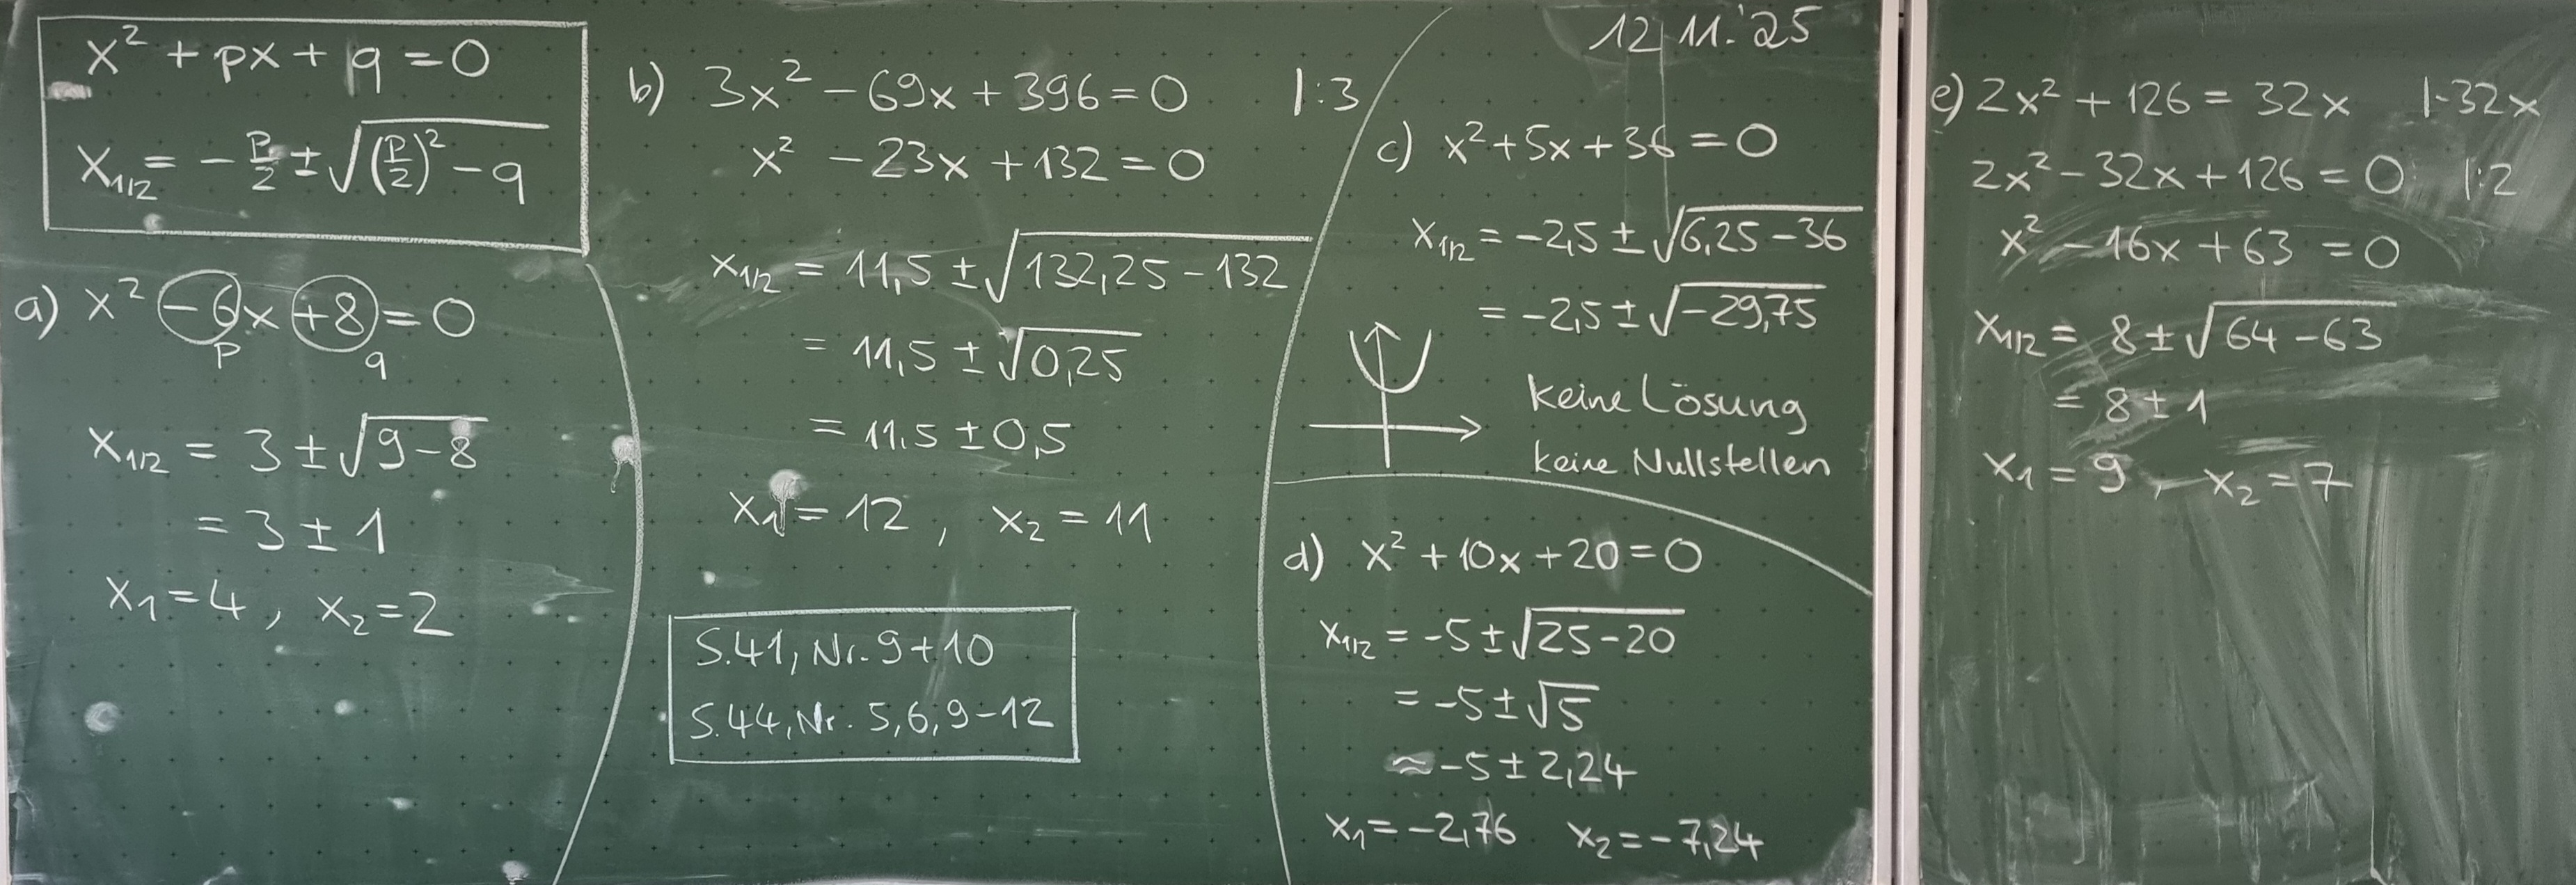 x² + px + q = 0
x₁/₂ = -p/2 ± √((p/2)² - q)
a) x² -6x +8 = 0
p q
x₁/₂ = 3 ± √(9-8)
= 3 ± 1
x₁ = 4, x₂ = 2
b) 3x² - 69x + 396 = 0 |:3
x² - 23x + 132 = 0
x₁/₂ = 11,5 ± √(132,25 - 132)
= 11,5 ± √0,25
= 11.5 ± 0,5
x₁ = 12, x₂ = 11
S.41, Nr. 9+10
S.44, Nr. 5,6,9-12
12.11.'25
c) x² + 5x + 36 = 0
x₁/₂ = -2,5 ± √(6,25 - 36)
= -2,5 ± √(-29,75)
keine Lösung
keine Nullstellen
d) x² + 10x + 20 = 0
x₁/₂ = -5 ± √(25-20)
= -5 ± √5
≈ -5 ± 2,24
x₁ = -2,76 x₂ = -7,24
e) 2x² + 126 = 32x |-32x
2x² - 32x + 126 = 0 |:2
x² - 16x + 63 = 0
x₁/₂ = 8 ± √(64 - 63)
= 8 ± 1
x₁ = 9, x₂ = 7